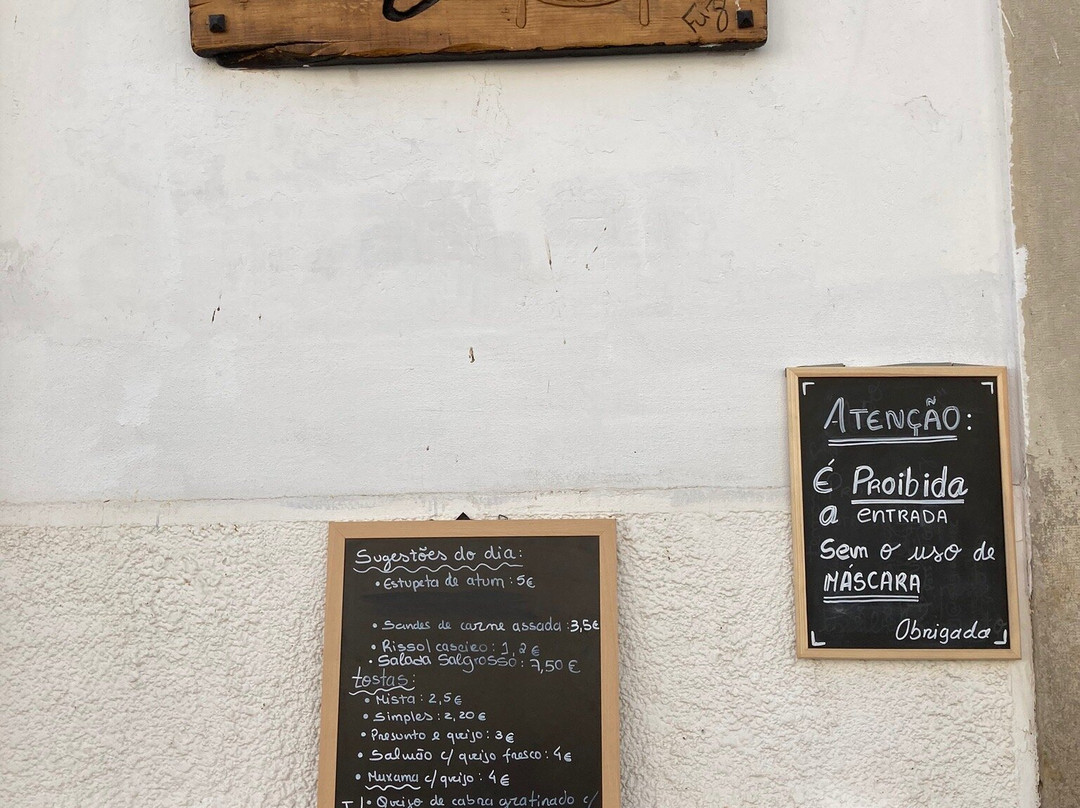 Fuz
Sugestões do dia:
• Estupeta de atum : 5€
• Sandes de carne assada : 3,5€
• Rissol caseiro : 1,2 €
• Salada Salgrosso : 7,50 €
tostas :
• Mista : 2,5€
• Simples : 2,20 €
• Presunto e queijo : 3€
• Salmão c/ queijo fresco : 4€
• Muxama c/ queijo : 4€
• Queijo de cabra gratinado c/
ATENÇÃO :
É PROibida
a ENTRADA
Sem o uso de
MÁSCARA
Obrigada